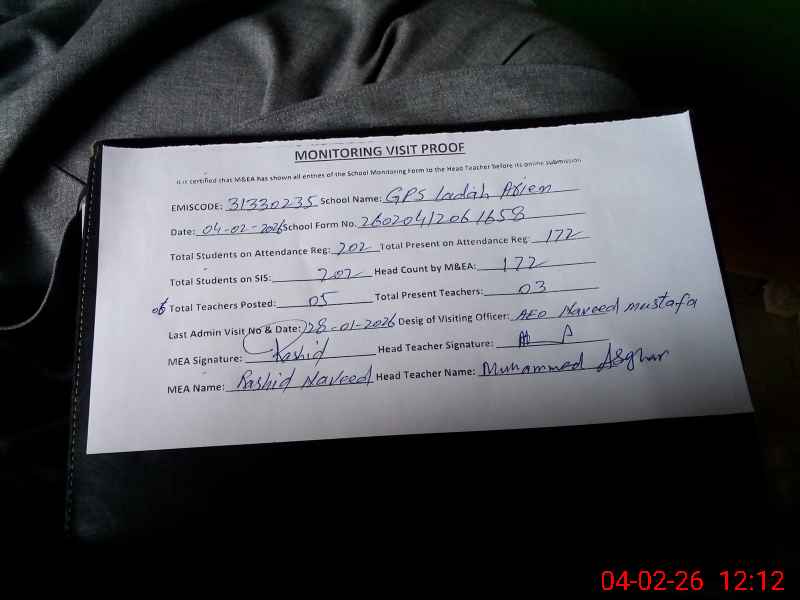 MONITORING VISIT PROOF
It is certified that M&EA has shown all entries of the School Monitoring Form to the Head Teacher before its online submission
EMISCODE: 31330235 School Name: GPS Ladah Arien
Date: 04-02-2026 School Form No. 26020412061658
Total Students on Attendance Reg: 202 Total Present on Attendance Reg: 172
Total Students on SIS: 202 Head Count by M&EA: 172
Total Teachers Posted: 05 Total Present Teachers: 03
Last Admin Visit No & Date: 28-01-2026 Desig of Visiting Officer: AEO Naveed mustafa
MEA Signature: Rashid Head Teacher Signature:
MEA Name: Rashid Naveed Head Teacher Name: Muhammed Asghar
04-02-26 12:12